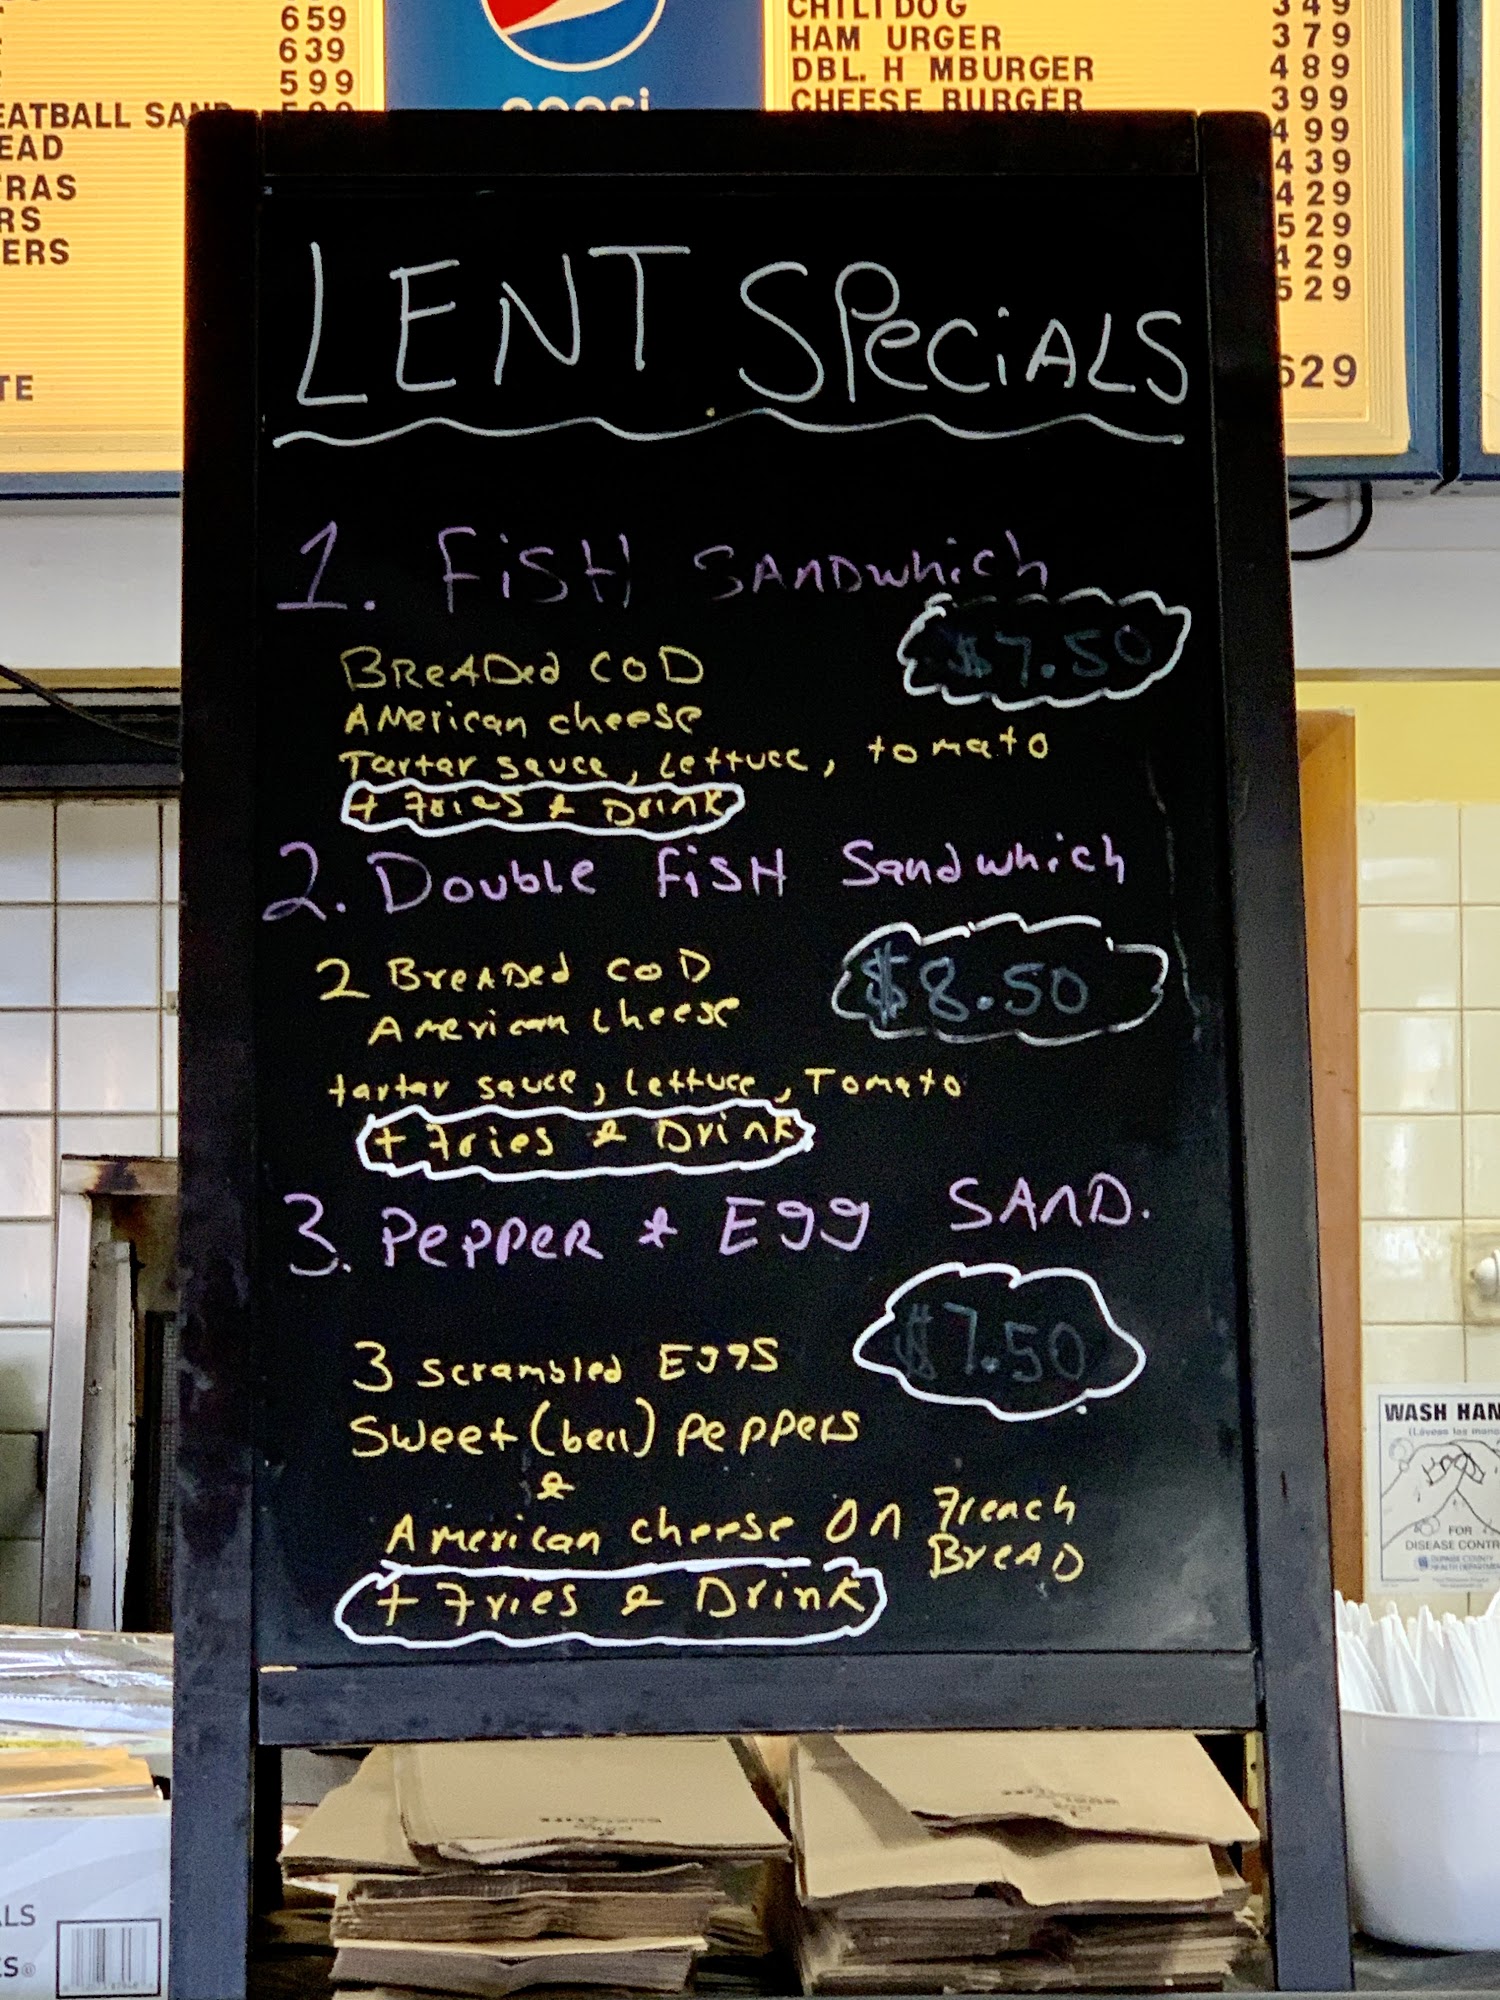 659
639
599
599
EATBALL SAND
EAD
TRAS
RS
ERS
TE
pepsi
CHILI DOG 349
HAM URGER 379
DBL. H MBURGER 489
CHEESE BURGER 399
499
439
429
529
429
529
629
LENT SPeciALS
1. FiSH SANDwhich
$7.50
BReADed COD
AMerican cheese
Tartar sauce, Lettuce, tomato
+ Fries & Drink
2. Double FiSH Sandwhich
2 BreADed COD
$8.50
American cheese
tartar sauce, Lettuce, Tomato
+ Fries & Drink
3. Pepper & Egg SAND.
$7.50
3 scrambled Eggs
Sweet (bell) Peppers
&
American cheese On French
BreAD
+ Fries & Drink
WASH HAN
(Lávese las mano
FOR
DISEASE CONTR
DUPAGE COUNTY
HEALTH DEPARTMENT
LS
S®